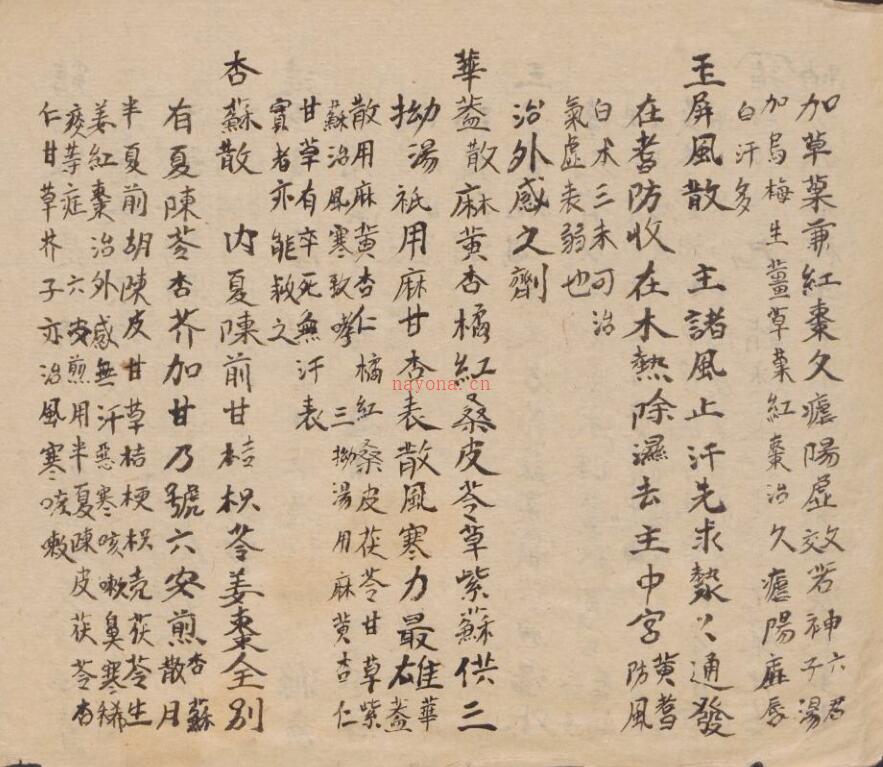 加草菓兼紅棗久瘧陽虛效若神六君子湯
加烏梅生薑草菓紅棗治久瘧陽虛唇
白汗多
玉屏風散 主諸風止汗先求〻通發
在耆防收在木熱除濕去主中宮黄耆防風
白术三末可治
氣虛表弱也
治外感之劑
華蓋散麻黃杏橘紅桑皮苓草紫蘇供三
拗湯祇用麻甘杏表散風寒力最雄華蓋
散用麻黃杏仁橘紅桑皮茯苓甘草紫
蘇治風寒致哮 三拗湯用麻黃杏仁
甘草有卒死無汗表
實者亦能救之
杏蘇散 內夏陳前甘桔枳苓姜棗全別
有夏陳苓杏芥加甘乃號六安煎杏蘇散用
半夏前胡陳皮甘草桔梗枳壳茯苓生
姜紅棗治外感無汗惡寒咳嗽鼻寒稀
痰等症 六安煎用半夏陳皮茯苓杏
仁甘草芥子亦治風寒咳嗽
nayona.cn